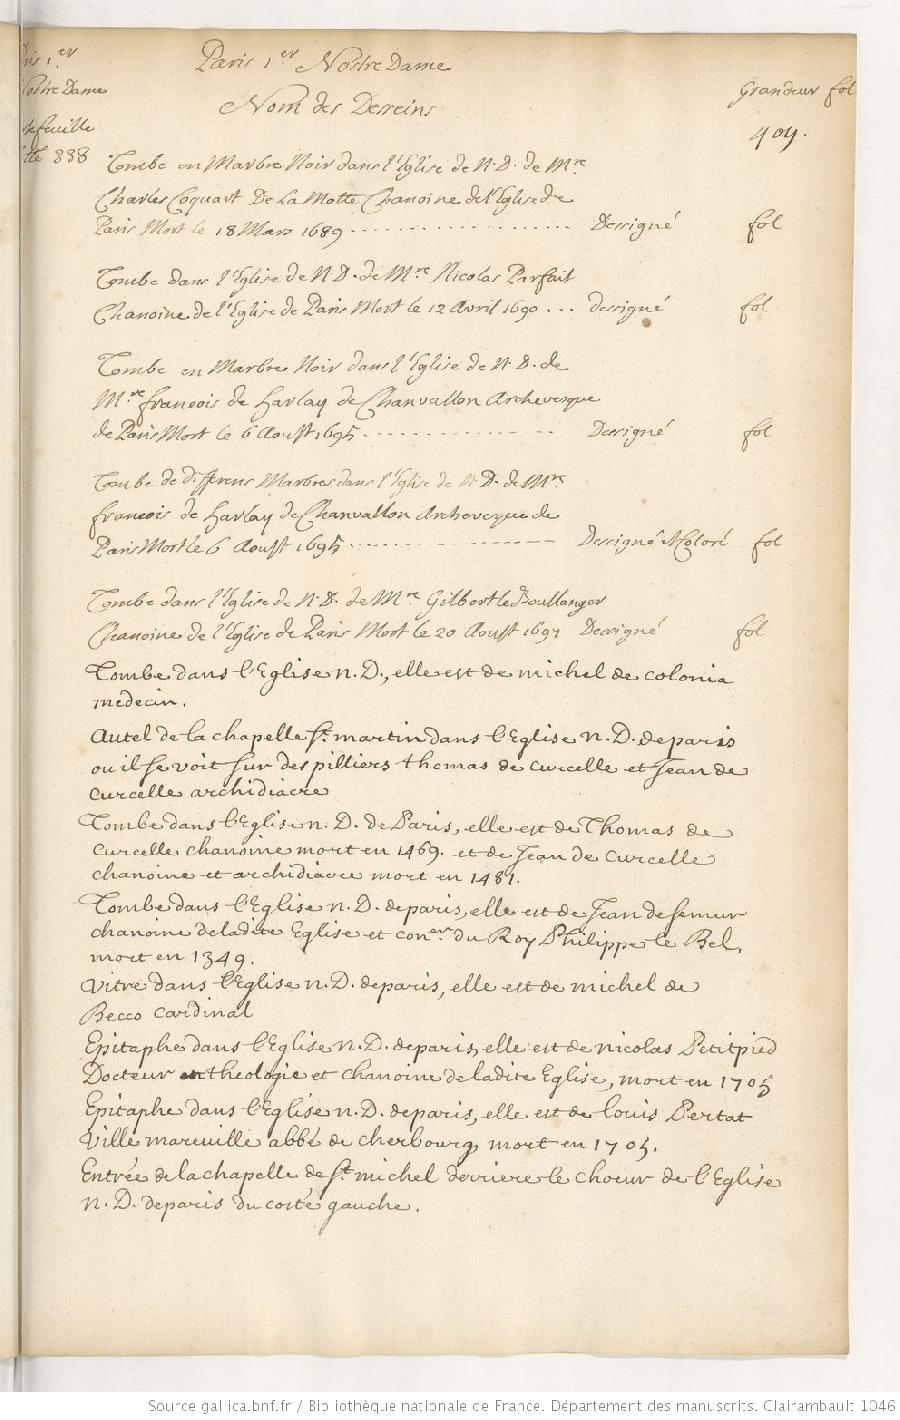 Paris 1.er Nostre Dame
Nom des Desseins
Grandeur fol
409.
is 1.er
ostre Dame
tefeuille
tte 888
Tombe en Marbre Noir dans l'Eglise de N. D. de Mre
Charles Coquart De La Motte Chanoine de l'Eglise de
Paris Mort le 18 Mars 1689 Dessigné fol
Tombe dans l'Eglise de N. D. de Mre Nicolas Parfait
Chanoine de l'Eglise de Paris Mort le 12 Avril 1690 ... dessigné fol
Tombe en Marbre Noir dans l'Eglise de N. D. de
Mre francois de harlay de Chanvallon Archevesque
de Paris Mort le 6 Aoust 1695 Dessigné fol
Tombe de differens Marbres dans l'Eglise de N. D. de Mre
francois de harlay de Chanvallon Archevesque de
Paris Mort le 6 Aoust 1695 Dessigné &Coloré fol
Tombe dans l'Eglise de N. D. de Mre Gilbert le Boullanger
Chanoine de l'Eglise de Paris Mort le 20 Aoust 1697 Dessigné fol
Tombe dans l'Eglise n. D., elle est de michel de colonia
medecin.
Autel de la chapelle st. martin dans l'Eglise n. D. de paris
ou il se voit sur des pilliers thomas de curcelle et Jean de
curcelle archidiacre
Tombe dans l'Eglise n. D. de Paris, elle est de Thomas de
curcelle chanoine mort en 1469. et de Jean de curcelle
chanoine et archidiacre mort en 1481.
Tombe dans l'Eglise n. D. de paris, elle est de Jean de semur
chanoine de ladite Eglise et coner du Roy Philippe le Bel,
mort en 1349.
vitre dans l'Eglise n. D. de paris, elle est de michel de
Becco cardinal
Epitaphe dans l'Eglise n. D. de paris, elle est de nicolas Petitpied
Docteur en theologie et chanoine de ladite Eglise, mort en 1705
Epitaphe dans l'Eglise n. D. de paris, elle est de louis Bertat
ville mareuille abbé de cherbourg, mort en 1705.
Entrée de la chapelle de st. michel derriere le choeur de l'Eglise
n. D. de paris du costé gauche.
Source gallica.bnf.fr / Bibliothèque nationale de France. Département des manuscrits. Clairambault 1046